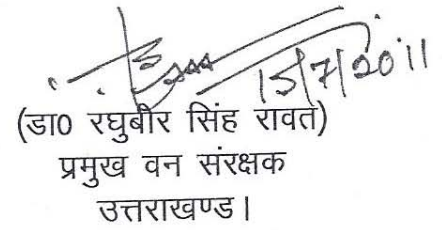 15/7/2011
(डा0 रघुबीर सिंह रावत)
प्रमुख वन संरक्षक
उत्तराखण्ड।